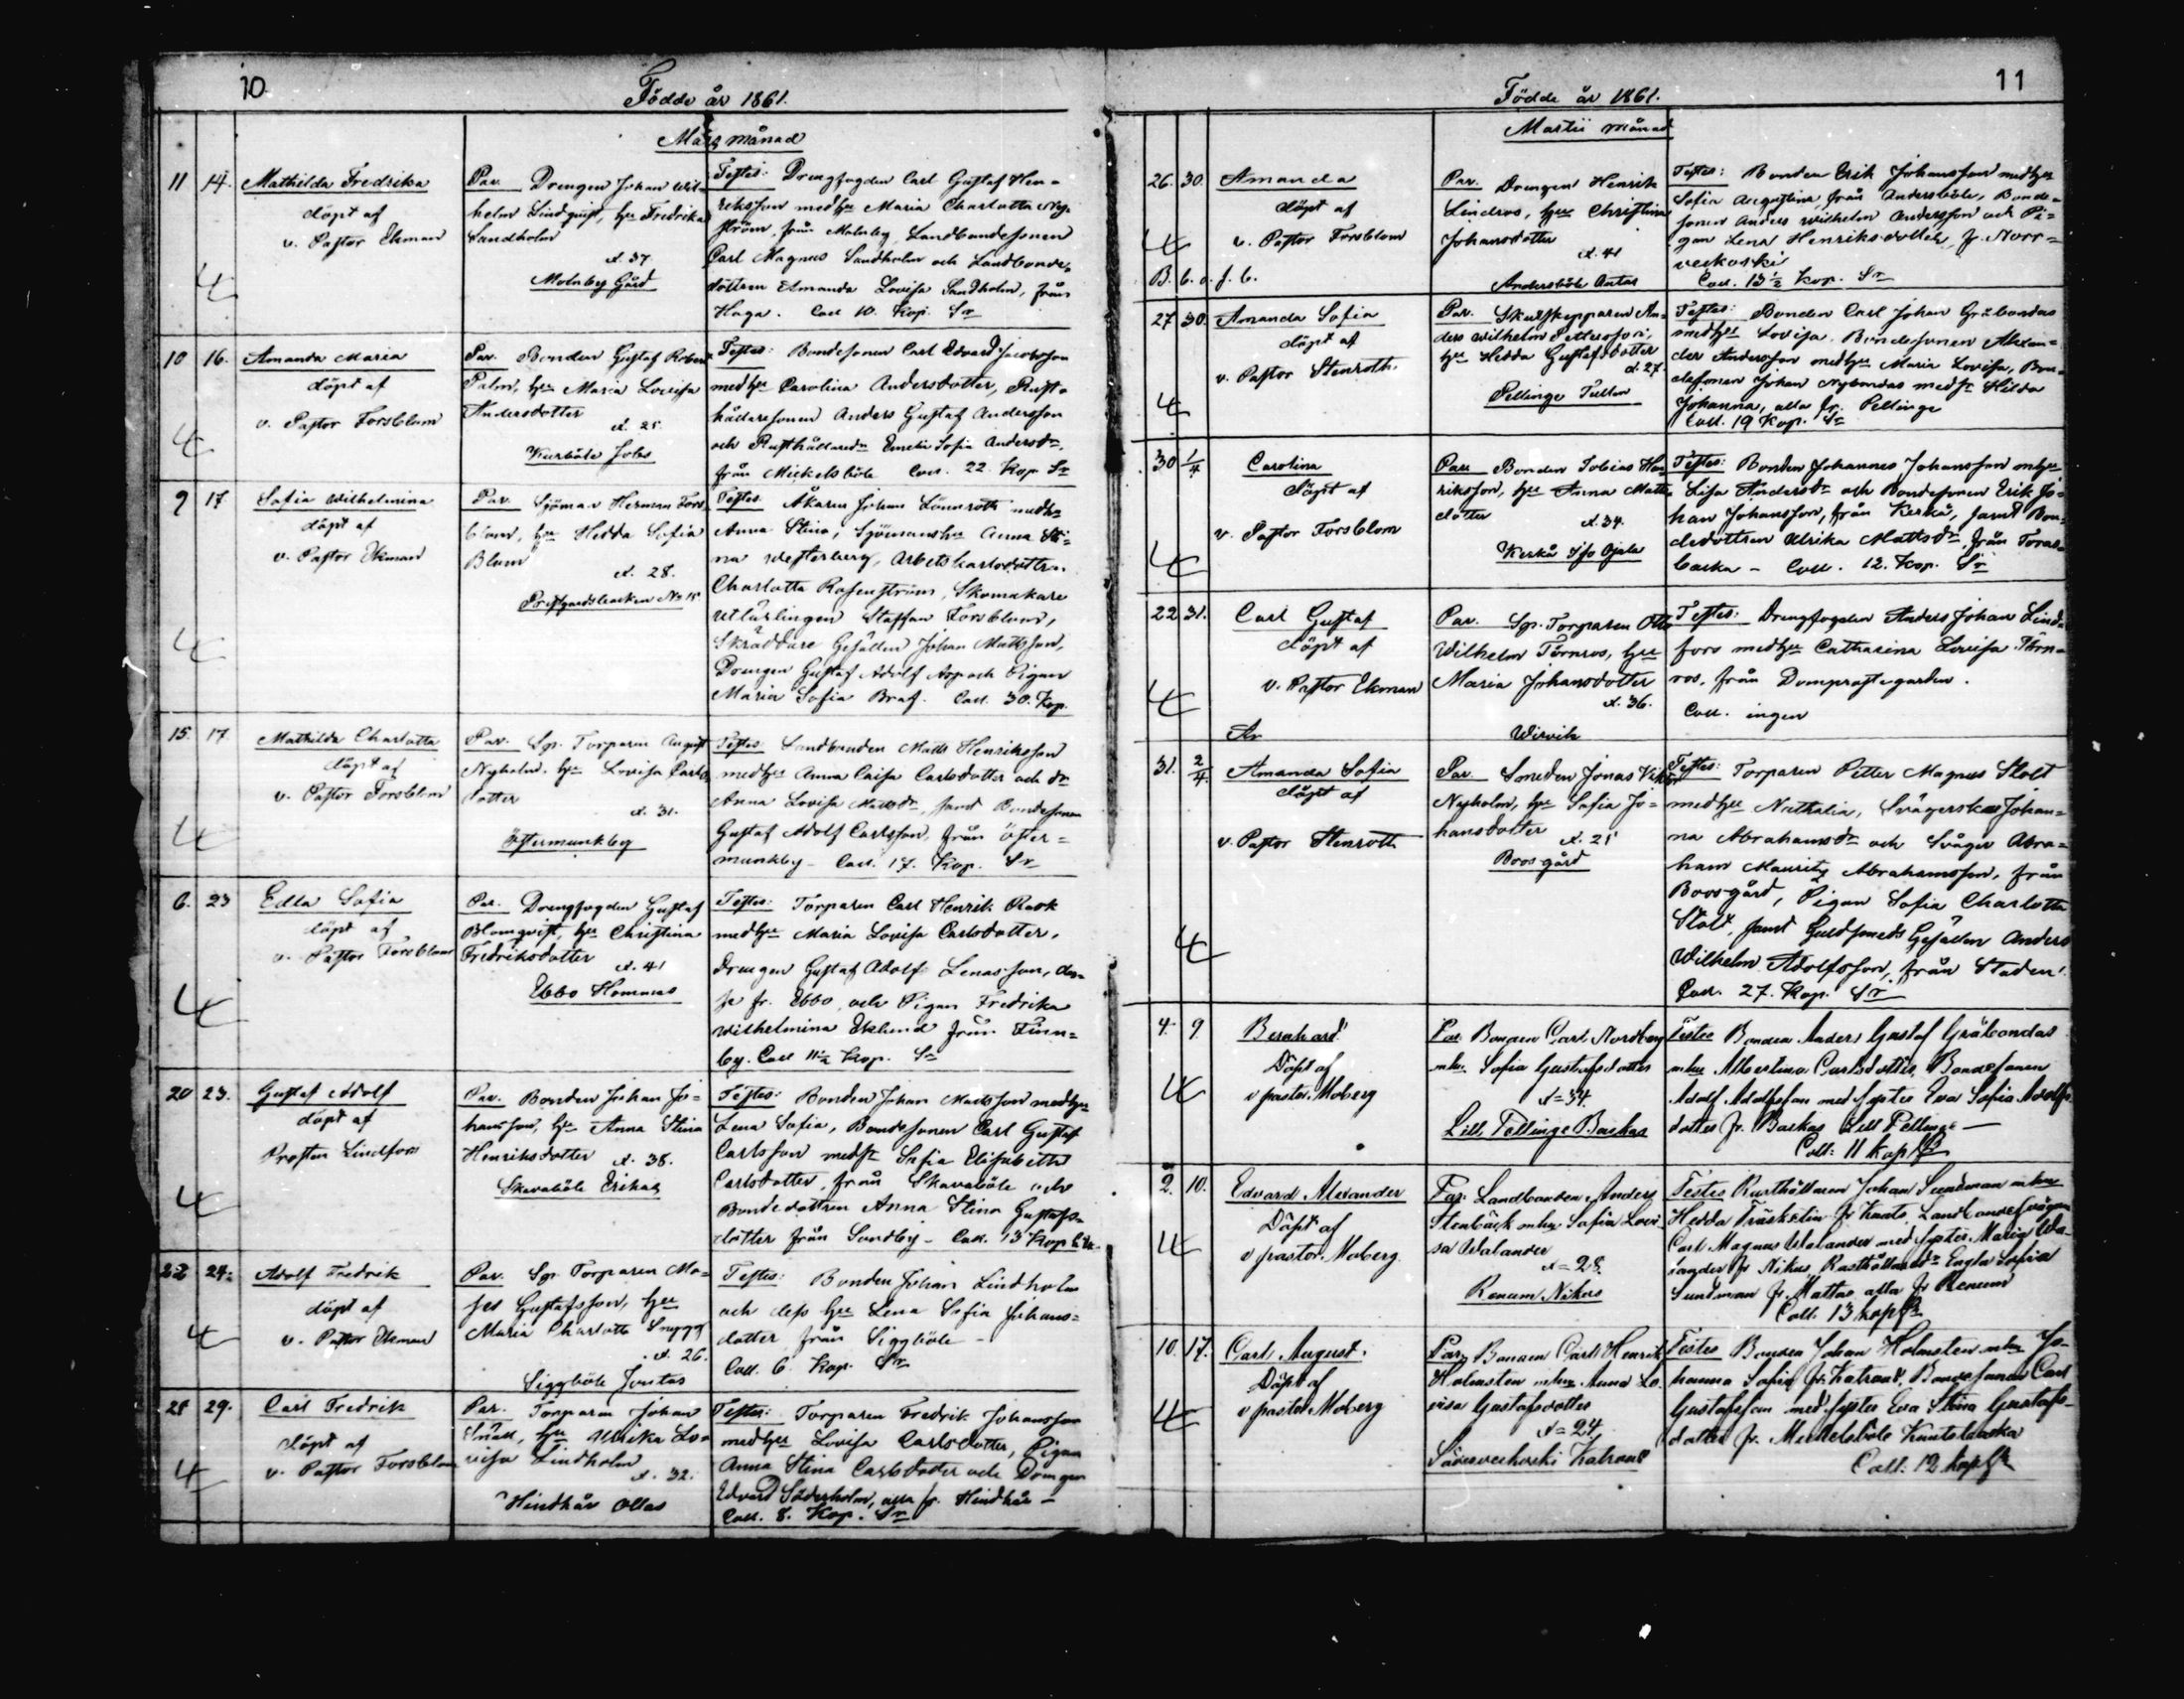 10
Födde år 1861.
Mars månad
11 14. Mathilda Fredrika
döpt af
v. Pastor Ekman
Par. Drengen Johan Wil-
helm Lindquist, hu Fredrika
Sandholm
et. 37
Molnby Gård
Testes: Drengfogden Carl Gustaf Hen-
riksson med hu Maria Charlotta Ny-
ström, från Molnby, Landbondesonen
Carl Magnus Sandholm och Landbonde-
dottren Amanda Lovisa Sandholm, från
Haga. Coll. 10. Kop. Sr
10 16. Amanda Maria
döpt af
v. Pastor Forsblom
Par. Bonden Gustaf Robert
Palm, hu Maria Lovisa
Andersdotter
et. 25.
Kurböle Jobas
Testes: Bondesonen Carl Edvard Jacobsson
med hu Carolina Andersdotter, Rust-
hållaresonen Anders Gustaf Andersson
och Rusthållaredr Emelie Sofia Andersdr
från Mickelsböle Coll. 22. Kop Sr
9 17. Sofia Wilhelmina
döpt af
v. Pastor Ekman
Par. Sjöman Herman Fors-
blom, hu Hedda Sofia
Blum
et. 28.
Prestgårdsbacken No 15
Testes. Åkaren Johan Lönnroth med hu
Anna Stina, Sjömanshu Anna Sti-
na Westerberg, Arbetskarlsdottren
Charlotta Rosenström, Skomakare
utlärlingen Staffan Forsblom,
Skräddare Gesällen Johan Mattsson,
Drengen Gustaf Adolf Asp och Pigan
Maria Sofia Braf. Coll. 30. Kop.
15. 17 Mathilda Charlotta
döpt af
v. Pastor Forsblom
Par. Sp. Torparen August
Nyholm, hu Lovisa Carls-
dotter
et. 31.
Östermunkby
Testes Landbonden Matts Henriksson
med hu Anna Caisa Carlsdotter och dr
Anna Lovisa Mattsdr, samt Bondesonen
Gustaf Adolf Carlsson, från Öster-
munkby - Coll. 17. Kop. Sr
6. 23 Edla Sofia
döpt af
v. Pastor Forsblom
Par. Drengfogden Gustaf
Blomqvist, hu Christina
Fredriksdotter
et. 41
Ebbo Hommas
Testes: Torparen Carl Henrik Rask
med hu Maria Lovisa Carlsdotter,
Drengen Gustaf Adolf Lenasson, des-
se fr. Ebbo, och Pigan Fredrika
Wilhelmina Eklund från Finn-
by. Coll 11½ Kop. Sr
20 23. Gustaf Adolf
döpt af
Prosten Lindfors
Par. Bonden Johan Jo-
hansson, hu Anna Stina
Henriksdotter et. 38.
Skavaböle Erikas
Testes: Bonden Johan Mattsson med hu
Lena Sofia, Bondesonen Carl Gustaf
Carlsson med sr Sofia Elisabeth
Carlsdotter, från Skavaböle och
Bondedottren Anna Stina Gustafs-
dotter från Sondby - Coll. 13 Kop
22 24. Adolf Fredrik
döpt af
v. Pastor Ekman
Par. Sp. Torparen Mo-
ses Gustafsson, hu
Maria Charlotta Snygg
et. 26.
Siggböle Jontas
Testes: Bonden Johan Lindholm
och dess hu Lena Sofia Johans-
dotter från Siggböle -
Coll. 6. Kop. Sr
25 29. Carl Fredrik
döpt af
v. Pastor Forsblom
Par. Torparen Johan
Snäll, hu Ulrika Lo-
visa Lindholm
et. 32.
Hindhår Ollas
Testes: Torparen Fredrik Johansson
med hu Lovisa Carlsdotter, Pigan
Anna Stina Carlsdotter och Drengen
Edvard Söderholm, alla fr. Hindhår -
Coll. 8. Kop. Sr
11
Födde år 1861.
Martii månad
26. 30. Amanda
döpt af
v. Pastor Forsblom
B. b. o. f. b.
Par. Drengen Henrik
Lindros, hu Christina
Johansdotter
et. 41
Andersböle Antas
Testes: Bonden Erik Johansson med hu
Sofia Augustina, från Andersböle, Bonde-
sonen Anders Wilhelm Andersson och Pi-
gan Lena Henriksdotter, fr. Norr-
veckoski
Coll. 13½ Kop. Sr
27 30. Amanda Sofia
döpt af
v. Pastor Stenroth.
Par. Skutskepparen An-
ders Wilhelm Pettersson,
hu Hedda Gustafsdotter
et. 27.
Pellinge Tullan
Testes: Bonden Carl Johan Gråbondas
med hu Lovisa, Bondesonen Alexan-
der Andersson med hu Maria Lovisa, Bon-
desonen Johan Nybondas med sr Hilda
Johanna, alla fr. Pellinge
Coll. 19 Kop. Sr
30 1/4 Carolina
döpt af
v. Pastor Forsblom
Par. Bonden Tobias Hen-
riksson, hu Anna Matts-
dotter
et. 34.
Kerko Iso Ojala
Testes: Bonden Johannes Johansson m hu
Lisa Andersdr och Bondesonen Erik Jo-
han Johansson, från Kerko, samt Bon-
dedottren Ulrika Mattsdr från Toras-
backa - Coll. 12. Kop. Sr
22 31. Carl Gustaf
döpt af
v. Pastor Ekman
Par. Sp. Torparen Otto
Wilhelm Törnros, hu
Maria Johansdotter
et. 36.
Wirvik
Testes: Drengfogden Anders Johan Lind-
fors med hu Catharina Lovisa Törn-
ros, från Domprostegården.
Coll. ingen
31. 2/4. Amanda Sofia
döpt af
v. Pastor Stenroth
Par. Smeden Jonas Viktor
Nyholm, hu Sofia Jo-
hansdotter
et. 25
Boosgård
Testes: Torparen Petter Magnus Stolt
med hu Nathalia, Svägerskan Johan-
na Abrahamsdr och Svåger Abra-
ham Mauritz Abrahamsson, från
Boosgård, Pigan Sofia Charlotta
Stolt, samt Guldsmeds Gesällen Anders
Wilhelm Adolfsson, från Staden.
Coll. 27. Kop. Sr
4. 9 Bernhard
Döpt af
v pastor Moberg
Par Bonden Carl Nordberg
mhu Sofia Gustafsdotter
et=34
Lill Pellinge Backas
Testes Bonden Anders Gustaf Gråbondas
mhu Albertina Carlsdotter, Bondesonen
Adolf Adolfsson med syster Eva Sofia Adolfs-
dotter fr. Backas Lill Pellinge —
Coll: 11 kop Sr
2. 10. Edvard Alexander
Döpt af
v pastor Moberg
Par Landbonden Anders
Stenbäck mhu Sofia Lovi-
sa Walander
et=28.
Renum Nikus
Testes Rusthållaren Johan Sundman mhu
Hedda Träskelin fr Knuts, Landbondesvågern
Carl Magnus Walander med syster Maria Wa-
lander fr Nikus, Rusthållaredr Engla Sofia
Sundman fr. Mattas alla fr Renum
Coll. 13 kop Sr
10. 17. Carl August.
Döpt af
v pastor Moberg
Par Bonden Carl Henrik
Holmsten mhu Anna Lo-
visa Gustafsdotter
et=24
Söderveckoski Katrant
Testes Bonden Johan Holmsten mhu Jo-
hanna Sofia fr. Katrant, Bondesonen Carl
Gustafsson med syster Eva Stina Gustafs-
dotter fr. Mickelsböle Knutsbacka
Coll: 12 kop Sr